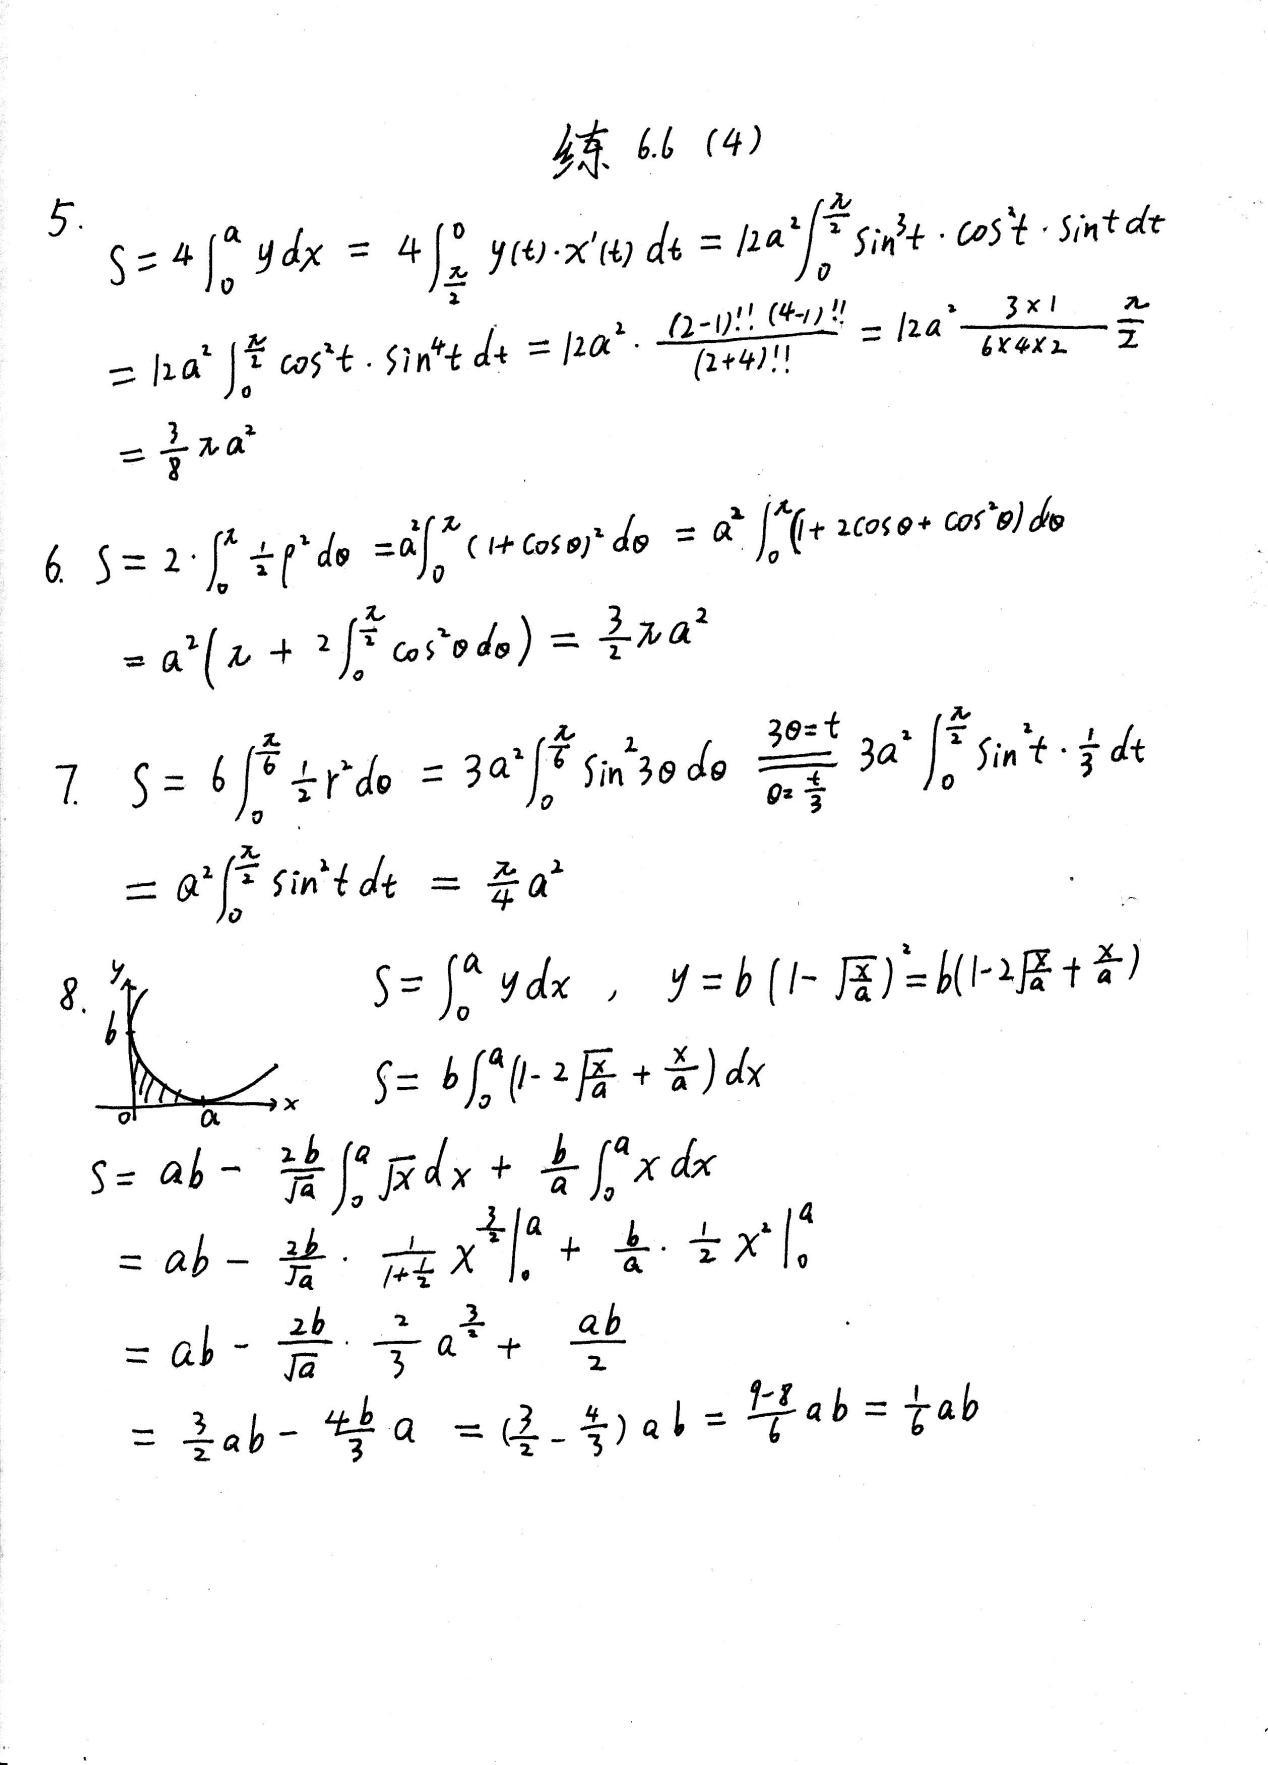 练 6.6 (4)
5.
S = 4∫₀ᵃ y dx = 4∫_{π/2}^0 y(t)·x'(t) dt = 12a²∫₀^{π/2} sin³t · cos²t · sint dt
= 12a² ∫₀^{π/2} cos²t · sin⁴t dt = 12a² · (2-1)!! (4-1)!! / (2+4)!! = 12a² (3×1)/(6×4×2) π/2
= 3/8 πa²
6. S = 2·∫₀^π 1/2 ρ² dθ = a²∫₀^π (1+cosθ)² dθ = a² ∫₀^π (1+2cosθ+cos²θ) dθ
= a²(π + 2∫₀^{π/2} cos²θ dθ) = 3/2 πa²
7. S = 6∫₀^{π/6} 1/2 r² dθ = 3a²∫₀^{π/6} sin²3θ dθ 3θ=t θ=t/3 3a² ∫₀^{π/2} sin²t · 1/3 dt
= a²∫₀^{π/2} sin²t dt = π/4 a²
8. y b 0 a x S = ∫₀ᵃ y dx , y = b(1-√(x/a))² = b(1-2√(x/a) + x/a)
S = b∫₀ᵃ(1-2√(x/a) + x/a) dx
S = ab - 2b/√a ∫₀ᵃ √x dx + b/a ∫₀ᵃ x dx
= ab - 2b/√a · 1/(1+1/2) x^{3/2}|₀ᵃ + b/a · 1/2 x²|₀ᵃ
= ab - 2b/√a · 2/3 a^{3/2} + ab/2
= 3/2 ab - 4b/3 a = (3/2 - 4/3) ab = (9-8)/6 ab = 1/6 ab